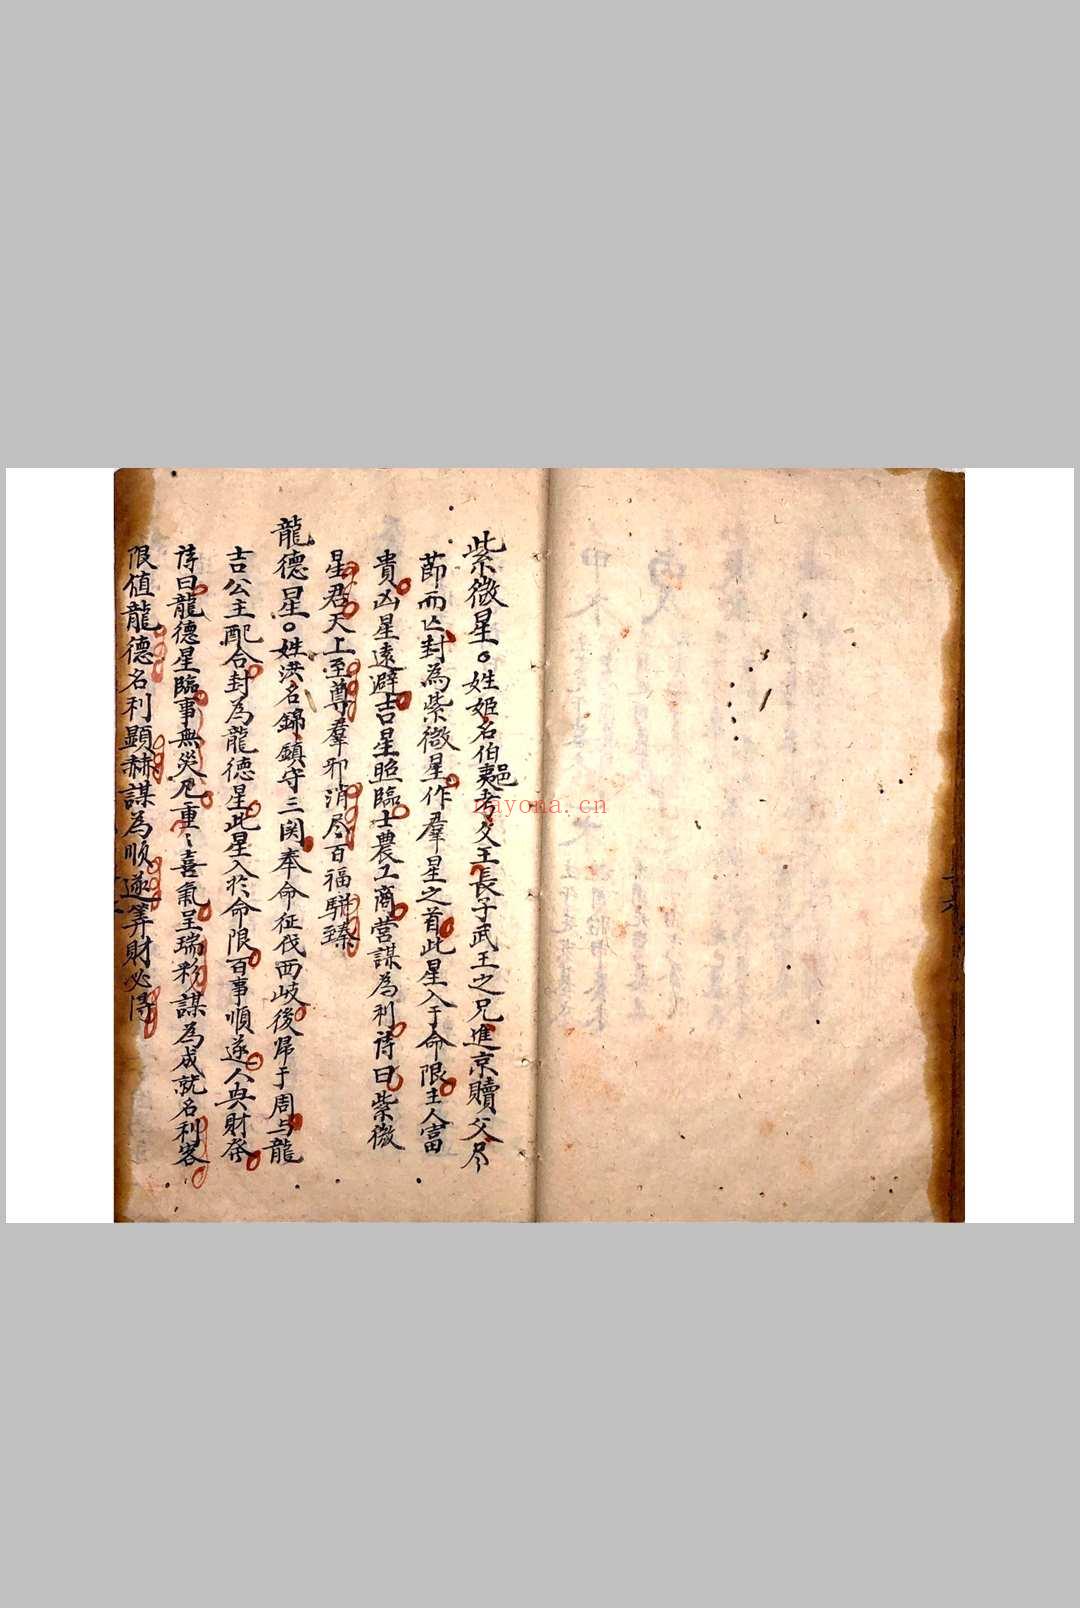 紫微星。姓姬名伯夷邑考文王長子武王之兄進京贖父尽
節而亡封為紫微星作羣星之首此星入于命限主人富
貴凶星遠避吉星照臨士農工商営謀為利诗曰紫微
星君天上至尊羣邪消尽百福駢臻
龍德星。姓洪名錦鎮守三関奉命征伐西岐後帰于周与龍
吉公主配合封為龍德星此星入於命限百事順遂人興財發
诗曰龍德星臨事無災凡重〻喜氣呈瑞彩謀為成就名利客
限值龍德名利顕赫謀為順遂筭財必得
nayona.cn